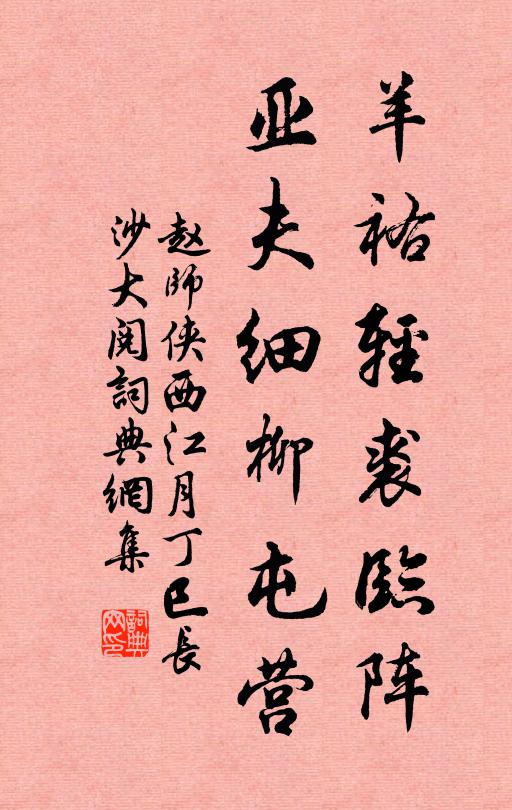 羊祜轻裘临阵
亚夫细柳屯营
赵师侠西江月丁巳长
沙大阅词典网集
词典网印